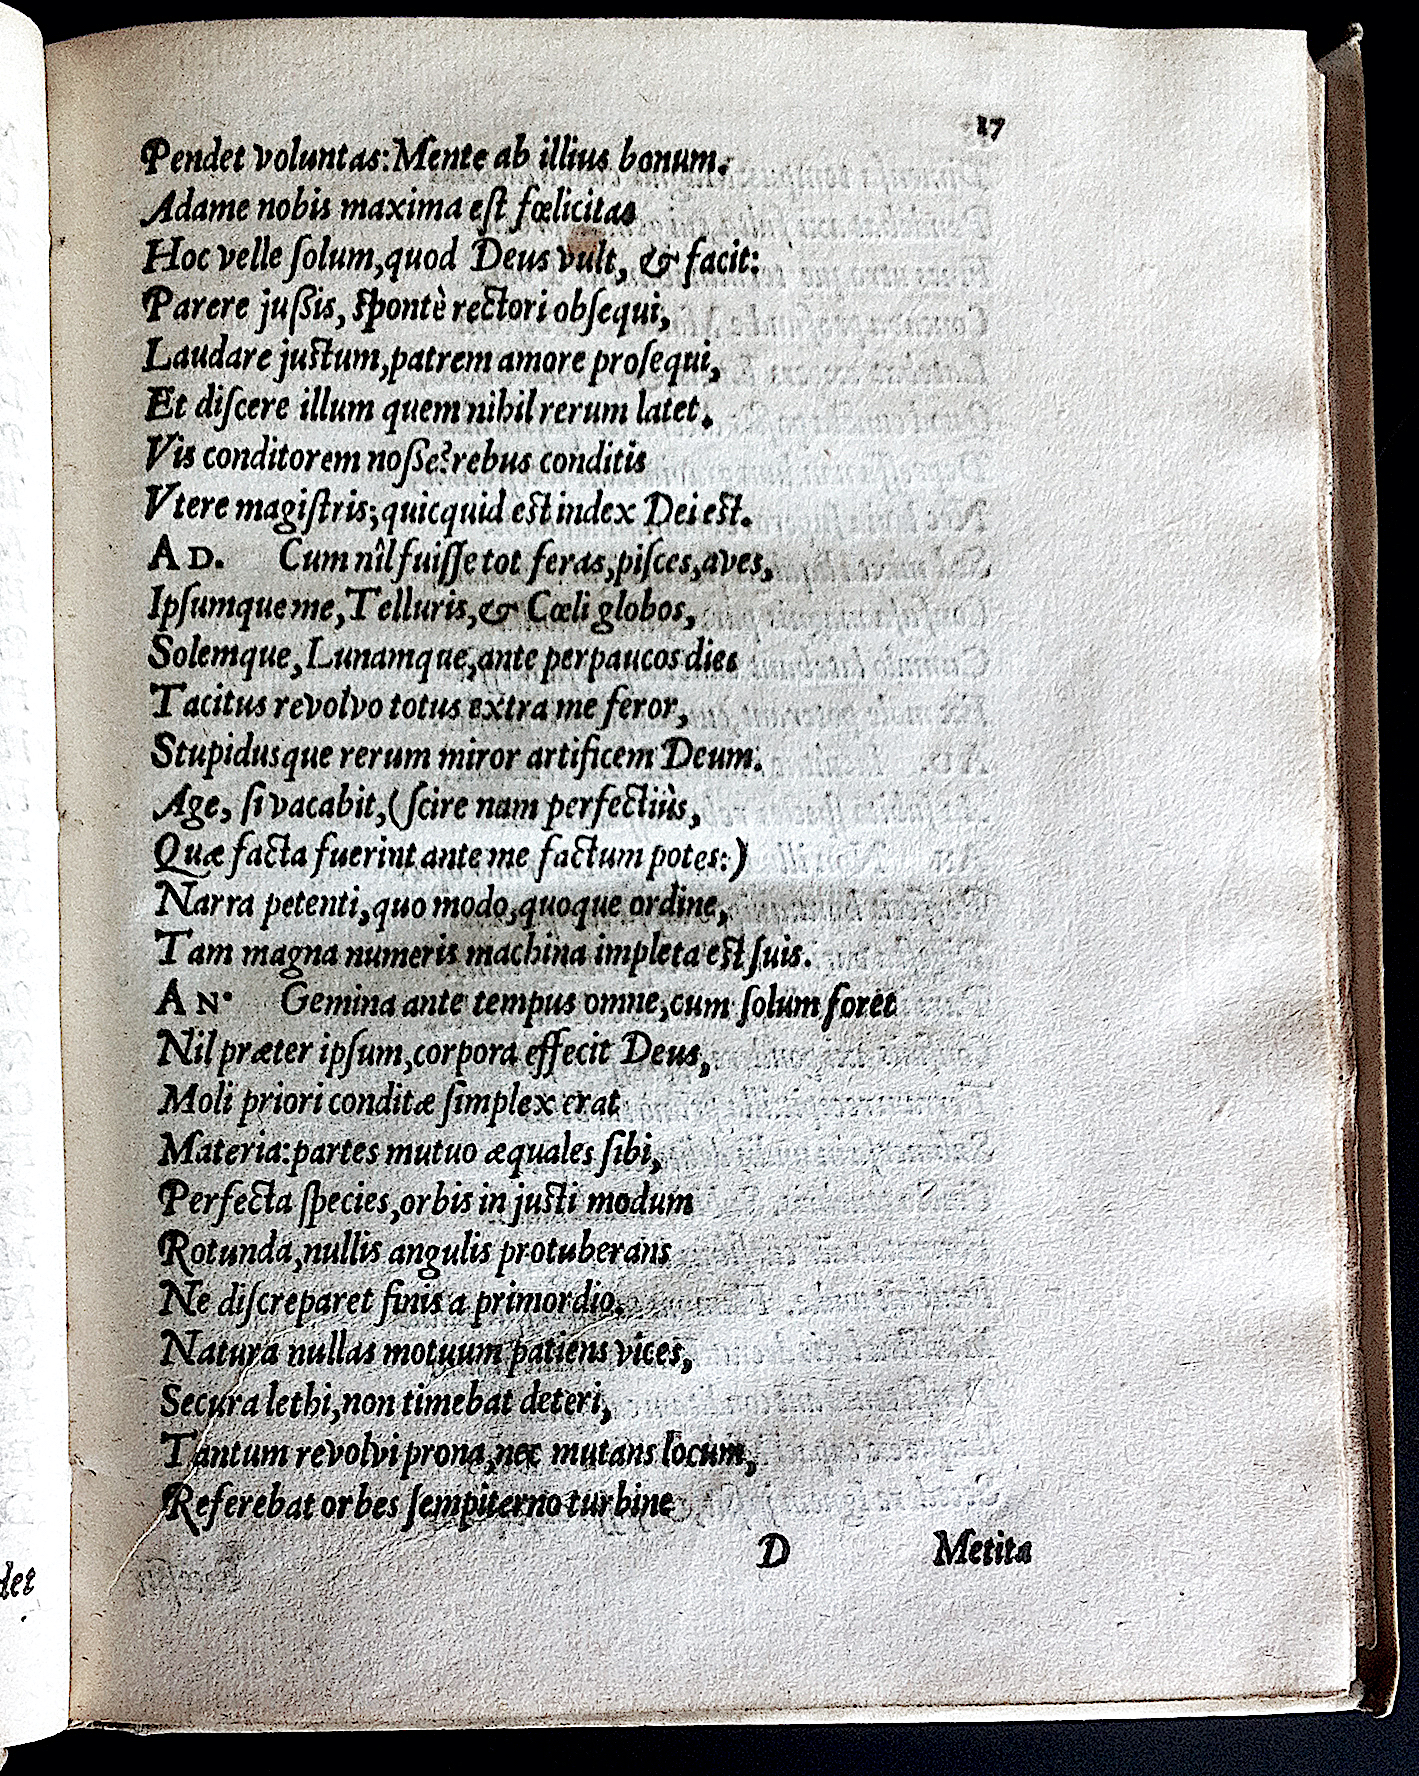 17
Pendet voluntas: Mente ab illius bonum.
Adame nobis maxima eſt fœlicitas
Hoc velle ſolum, quod Deus vult, & facit:
Parere juſsis, ſpontè rectori obſequi,
Laudare juſtum, patrem amore proſequi,
Et diſcere illum quem nihil rerum latet.
Vis conditorem noſse? rebus conditis
Vtere magiſtris; quicquid eſt index Dei eſt.
AD. Cum nîl fuiſſe tot feras, piſces, aves,
Ipſumque me, Telluris, & Cœli globos,
Solemque, Lunamque, ante perpaucos dies
Tacitus revolvo totus extra me feror,
Stupidusque rerum miror artificem Deum.
Age, ſi vacabit, (ſcire nam perfectiùs,
Quæ facta fuerint ante me factum potes:)
Narra petenti, quo modo, quoque ordine,
Tam magna numeris machina impleta eſt ſuis.
AN. Gemina ante tempus omne, cum ſolum foret
Nil præter ipſum, corpora effecit Deus,
Moli priori conditæ ſimplex erat
Materia: partes mutuo æquales ſibi,
Perfecta ſpecies, orbis in juſti modum
Rotunda, nullis angulis protuberans
Ne diſcreparet finis a primordio.
Natura nullas motuum patiens vices,
Secura lethi, non timebat deteri,
Tantum revolvi prona, nec mutans locum,
Referebat orbes ſempiterno turbine
D Metita